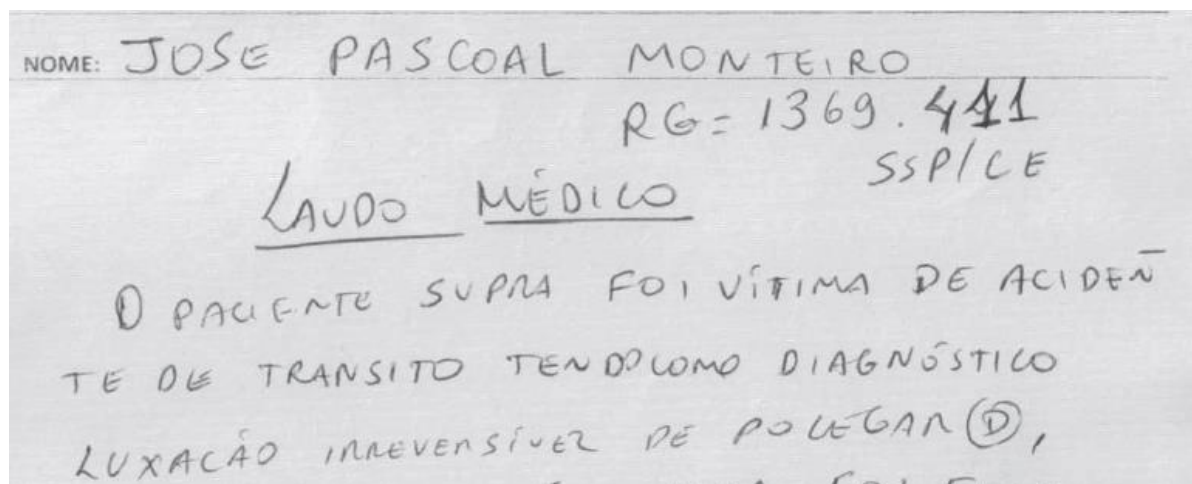 NOME: JOSE PASCOAL MONTEIRO
RG= 1369.411
SSP/CE
LAUDO MÉDICO
O PACIENTE SUPRA FOI VÍTIMA DE ACIDEN
TE DE TRANSITO TENDO COMO DIAGNÓSTICO
LUXACÃO IRREVERSÍVEL DE POLEGAR (D),